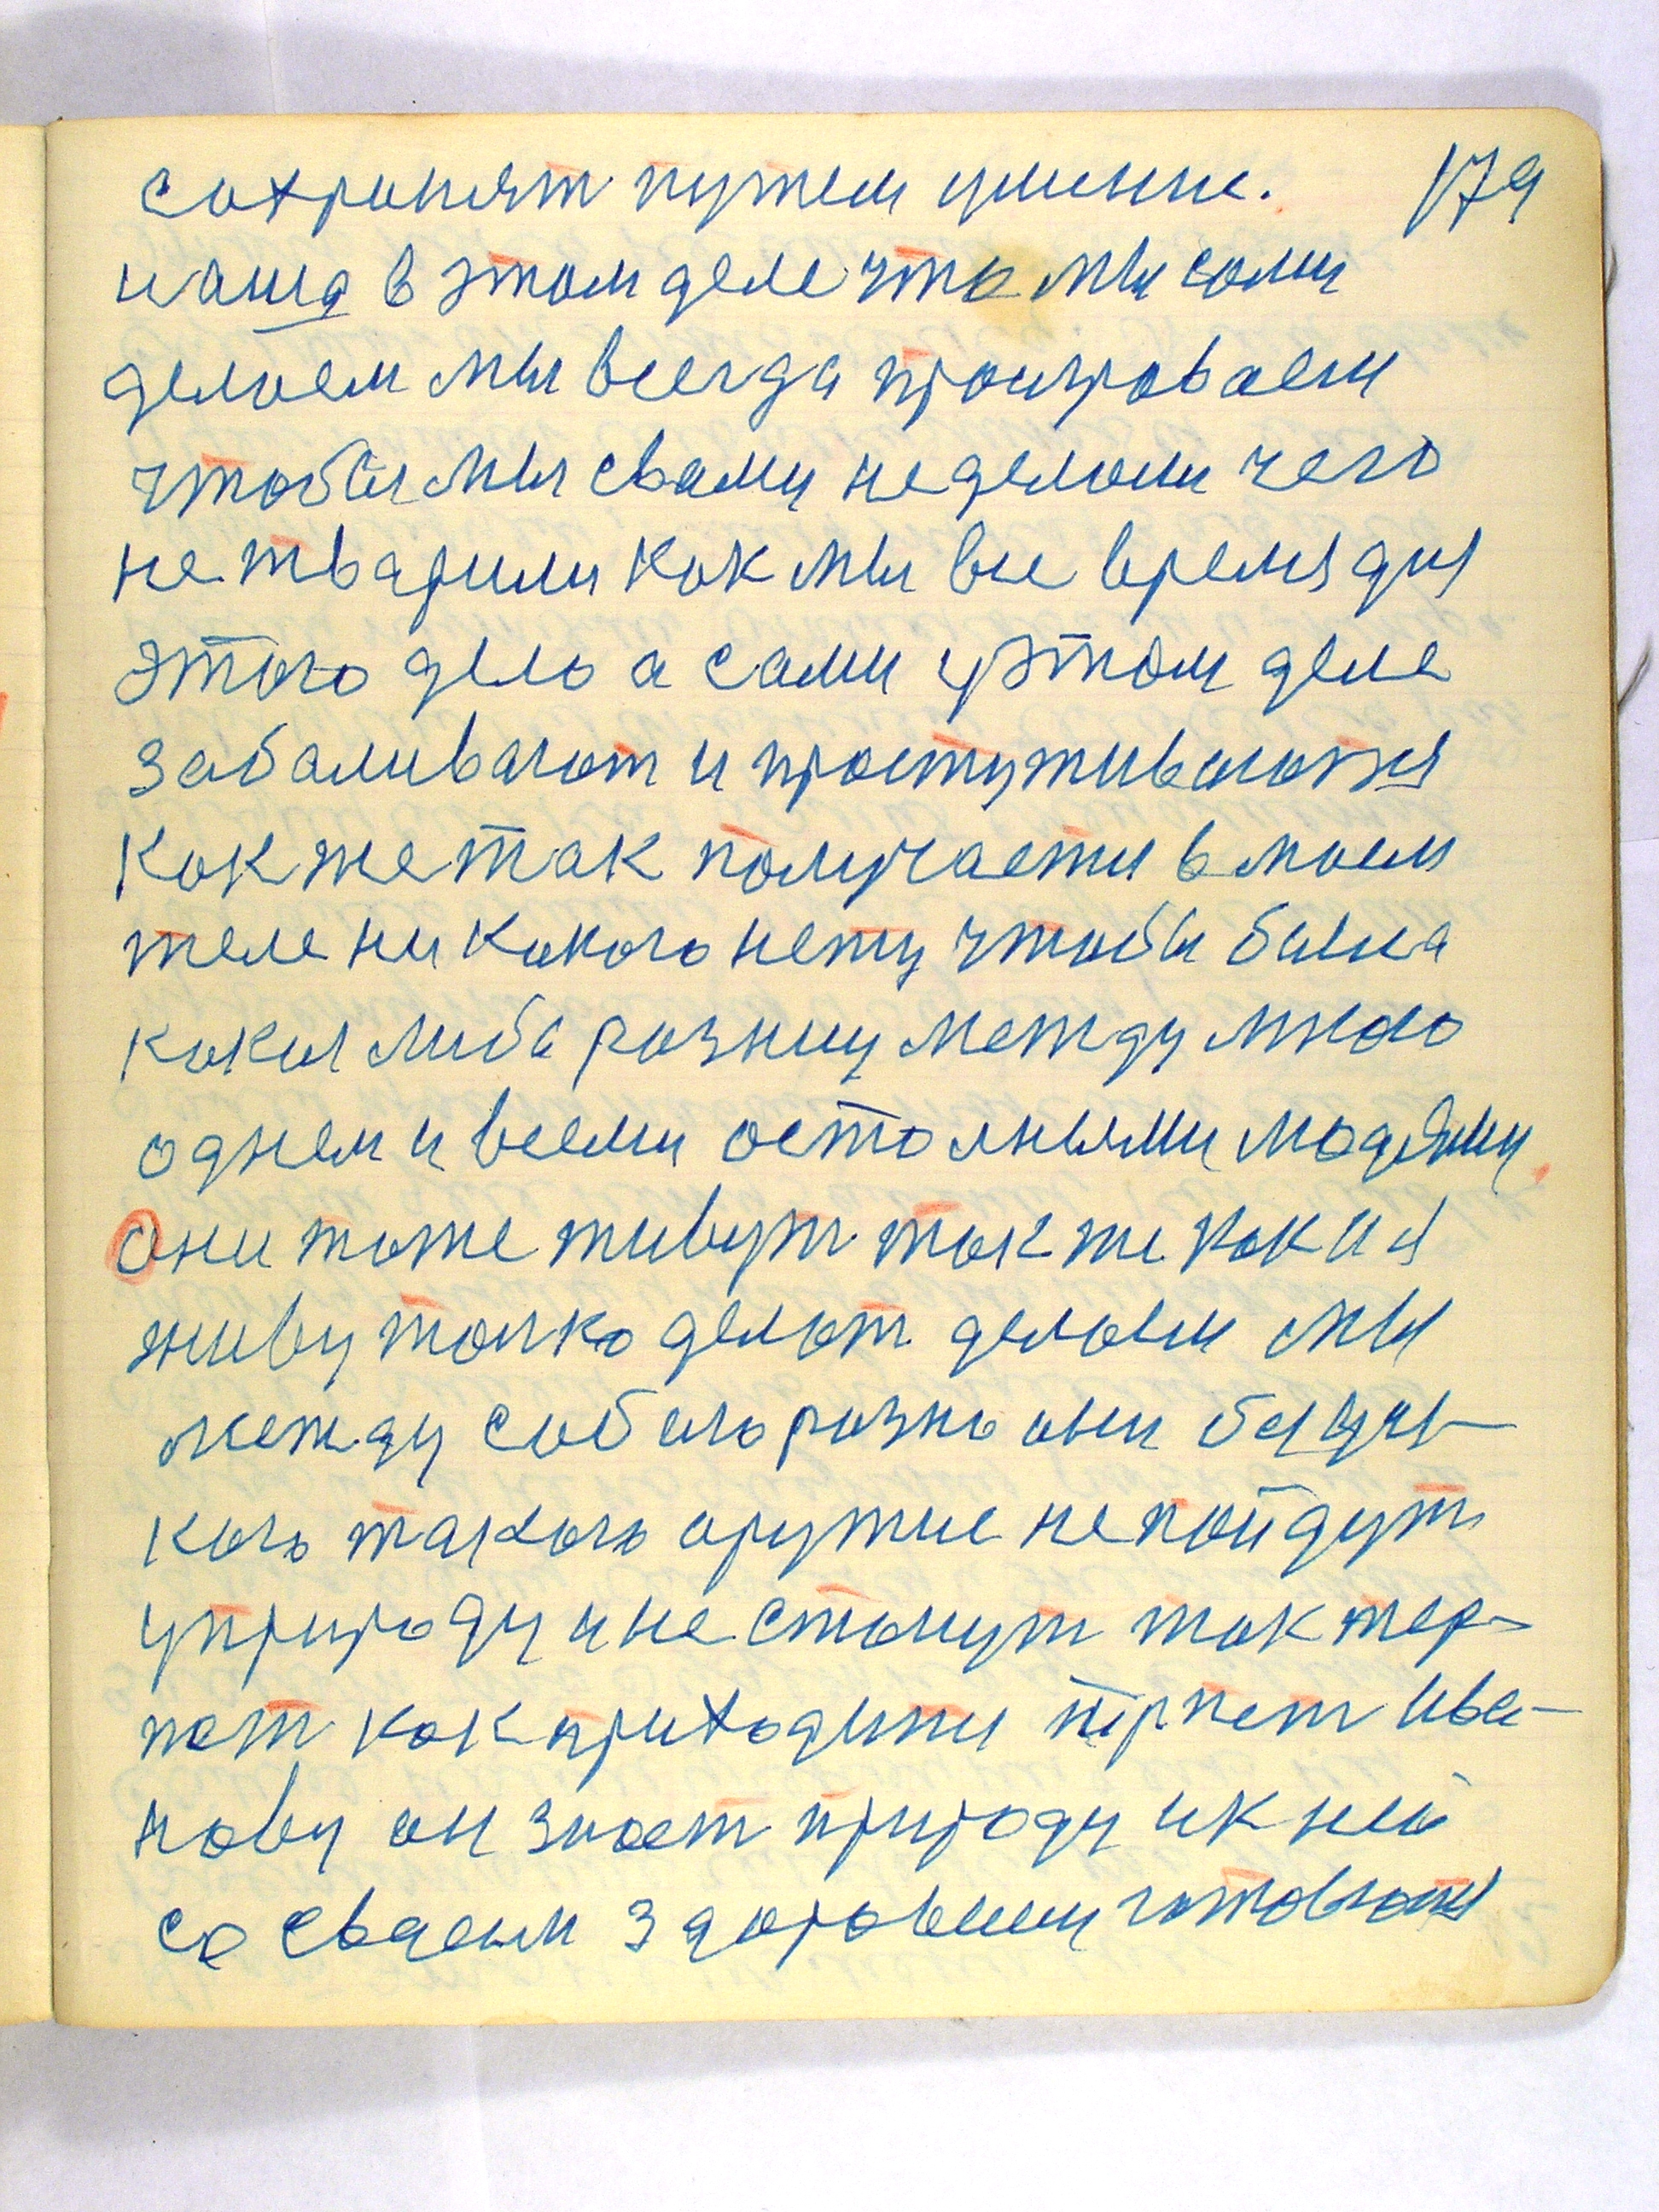 сохронят путем умение. 179
наша в этом деле что мы соми
делоем мы всегда проигроваем
чтобы мы свами не делоли чего
не тварили как мы все время для
этого дело а сами у этом деле
забаливают и простуживаются
как же так получаети в моем
теле ни какого нету чтобы была
какоя либа розницу между мною
однем и всеми остолными людями
они тоже живут так же как и я
живу толко делот делоем мы
между собою розно они без уся-
кого такого оружие не пойдут
уприроду и не станут так тер-
пет как приходити терпет Ива-
нову он знает природу и к ней
со сваем здоровием готовится